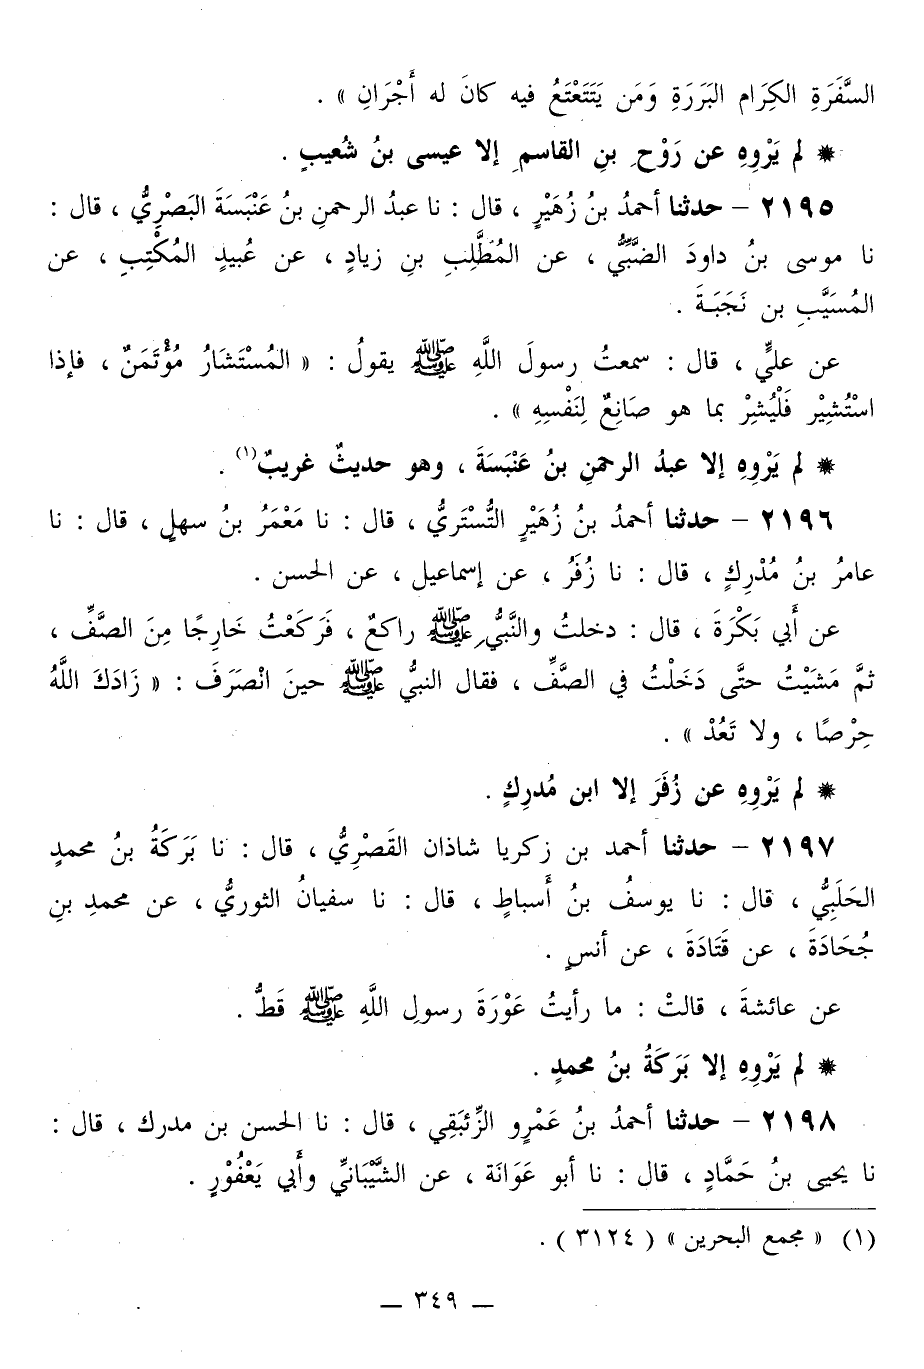 السَّفَرَةِ الكِرَامِ البَرَرَةِ وَمَن يَتَتَعْتَعُ فيه كانَ له أَجْرَانِ » .
* لم يَرْوِهِ عن رَوْحِ بنِ القاسمِ إلا عيسى بنُ شُعيبٍ .
٢١٩٥ – حدثنا أحمدُ بنُ زُهَيْرٍ ، قال : نا عبدُ الرحمنِ بنُ عَنْبَسَةَ البَصْرِيُّ ، قال :
نا موسى بنُ داودَ الضَّبِّيُّ ، عن المُطَّلِبِ بنِ زيادٍ ، عن عُبيدٍ المُكْتِبِ ، عن
المُسَيَّبِ بن نَجَبَةَ .
عن عليٍّ ، قال : سمعتُ رسولَ اللَّهِ ﷺ يقولُ : « المُسْتَشَارُ مُؤْتَمَنٌ ، فإذا
اسْتُشِيْر فَلْيُشِرْ بما هو صَانِعٌ لِنَفْسِهِ » .
* لم يَرْوِهِ إلا عبدُ الرحمنِ بنُ عَنْبَسَةَ ، وهو حديثٌ غريبٌ(١) .
٢١٩٦ – حدثنا أحمدُ بنُ زُهَيْرٍ التُّسْتَرِيُّ ، قال : نا مَعْمَرُ بنُ سهلٍ ، قال : نا
عامرُ بنُ مُدْرِكٍ ، قال : نا زُفَرُ ، عن إسماعيل ، عن الحسن .
عن أَبي بَكْرَةَ ، قال : دخلتُ والنَّبيُّ ﷺ راكعٌ ، فَرَكَعْتُ خَارِجًا مِنَ الصَّفِّ ،
ثمَّ مَشَيْتُ حتَّى دَخَلْتُ في الصَّفِّ ، فقال النبيُّ ﷺ حينَ انْصَرَفَ : « زَادَكَ اللَّهُ
حِرْصًا ، ولا تَعُدْ » .
* لم يَرْوِهِ عن زُفَرَ إلا ابن مُدرِكٍ .
٢١٩٧ – حدثنا أحمد بن زكريا شاذان القَصْرِيُّ ، قال : نا بَرَكَةُ بنُ محمدٍ
الحَلَبِيُّ ، قال : نا يوسفُ بنُ أَسباطٍ ، قال : نا سفيانُ الثوريُّ ، عن محمدِ بنِ
جُحَادَةَ ، عن قَتَادَةَ ، عن أنسٍ .
عن عائشةَ ، قالتْ : ما رأيتُ عَوْرَةَ رسولِ اللَّهِ ﷺ قَطُّ .
* لم يَرْوِهِ إلا بَرَكَةُ بنُ محمدٍ .
٢١٩٨ – حدثنا أحمدُ بنُ عَمْرٍو الزِّئبَقِي ، قال : نا الحسن بن مدرك ، قال :
نا يحيى بنُ حَمَّادٍ ، قال : نا أبو عَوَانَة ، عن الشَّيْبَانيِّ وأَبي يَعْفُوْرٍ .
(١) « مجمع البحرين » ( ٣١٢٤ ) .
– ٣٤٩ –